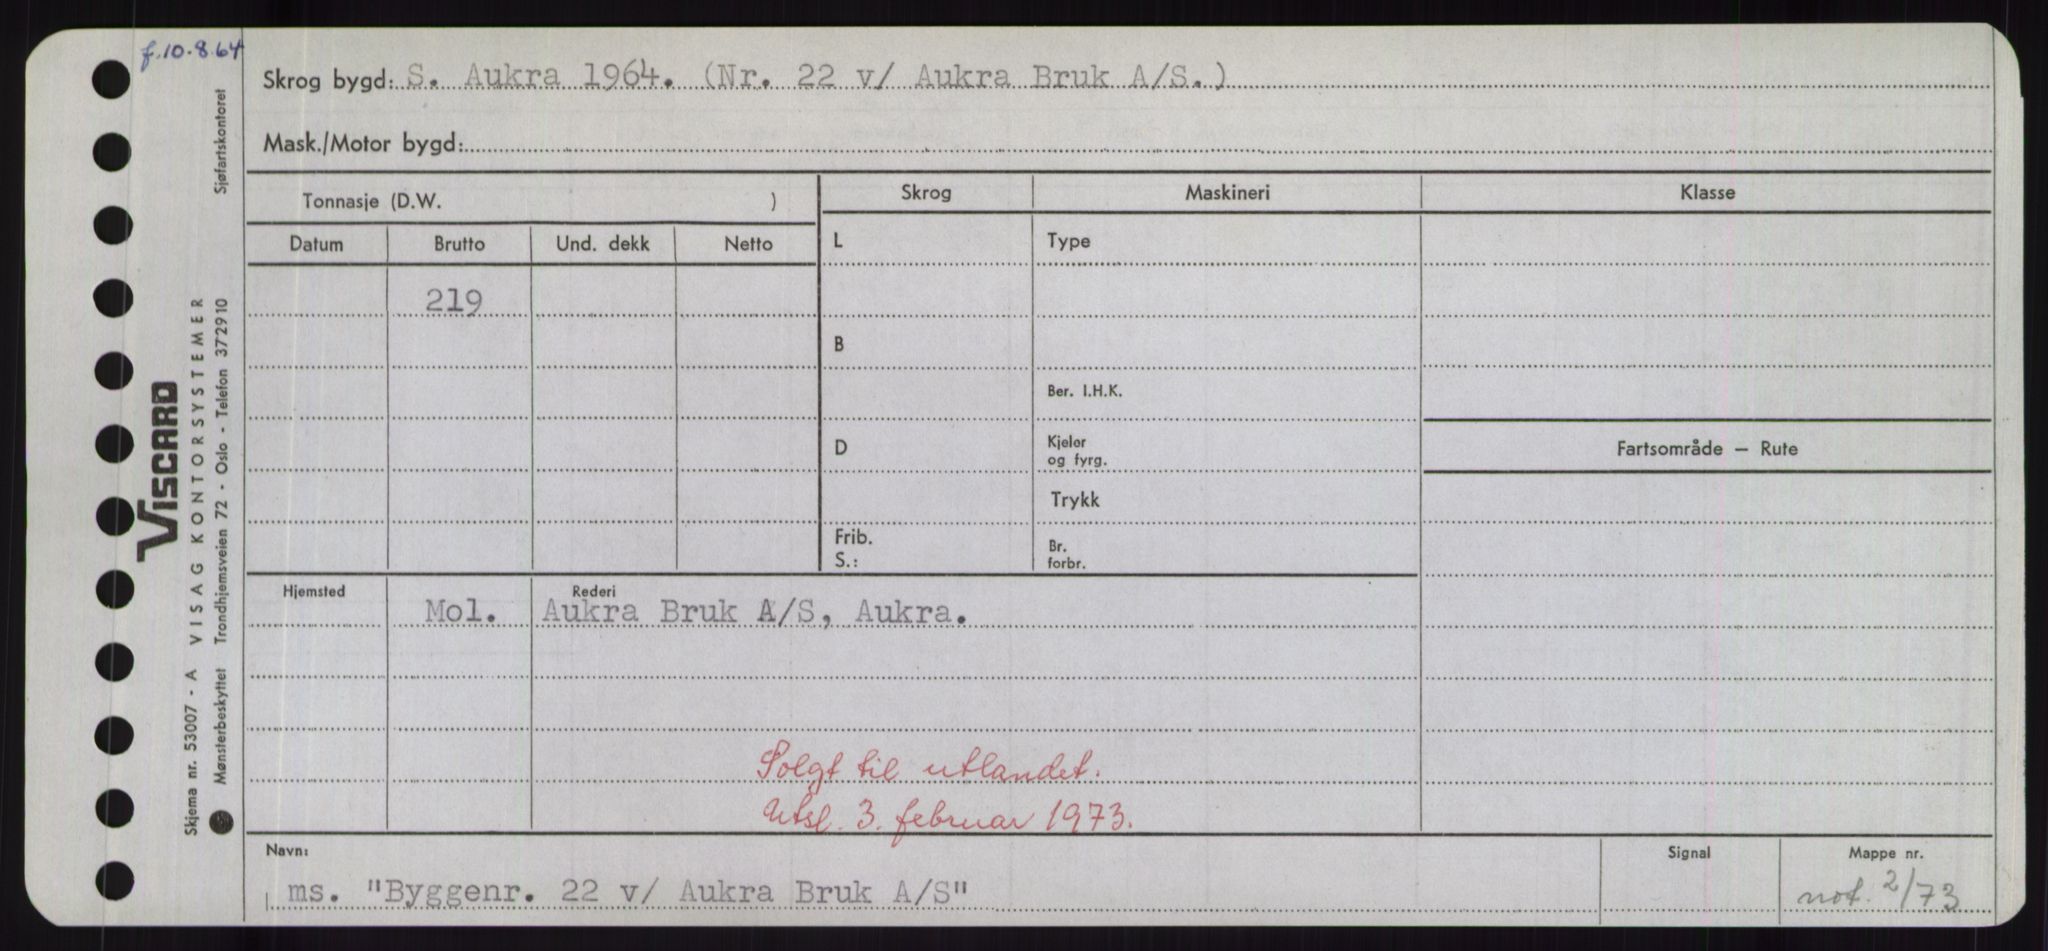 f.10.8.64
Skrog bygd: S. Aukra 1964. (Nr. 22 v/ Aukra Bruk A/S.)
Mask./Motor bygd:
Tonnasje (D.W. )
Skrog
Maskineri
Klasse
Datum
Brutto
Und. dekk
Netto
L
Type
219
B
Ber. I.H.K.
D
Kjeler
og fyrg.
Fartsområde – Rute
Trykk
Frib.
S.:
Br.
forbr.
Hjemsted
Rederi
Mol. Aukra Bruk A/S, Aukra.
Solgt til utlandet.
Utsl. 3. februar 1973.
Navn:
Signal
Mappe nr.
ms. "Byggenr. 22 v/ Aukra Bruk A/S"
not. 2/73
VISCARD
Skjema nr. 53007 - A VISAG KONTORSYSTEMER
Mønsterbeskyttet Trondhjemsveien 72 - Oslo - Telefon 372910 Sjøfartskontoret